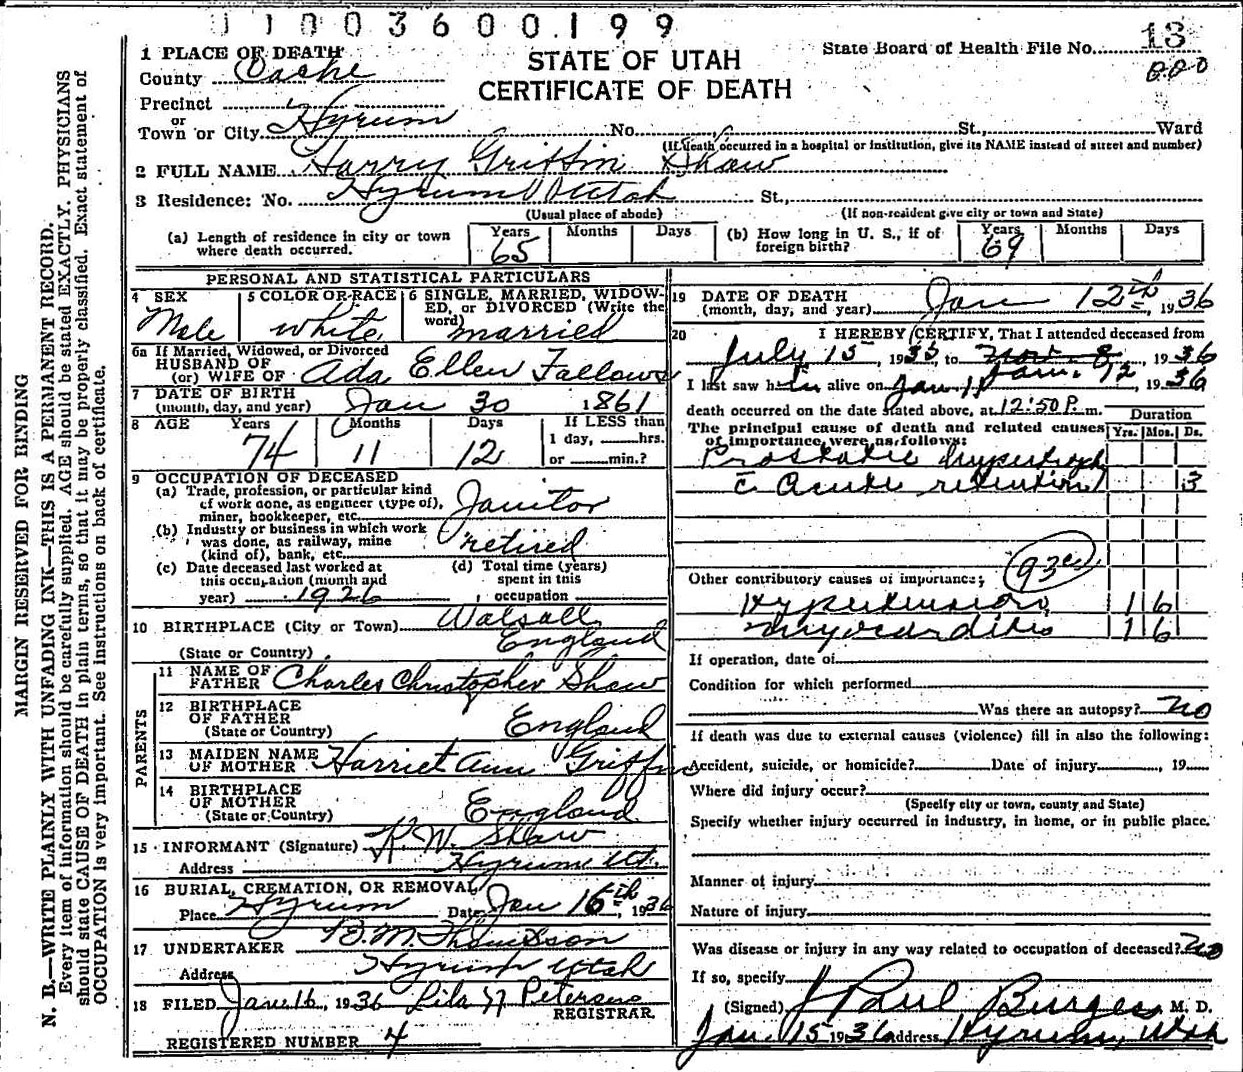 1 1 0 0 3 6 0 0 . 1 9 9
1 PLACE OF DEATH
County Cache
Precinct
or
Town or City Hyrum No. St., Ward
STATE OF UTAH
CERTIFICATE OF DEATH
State Board of Health File No. 13
(If death occurred in a hospital or institution, give its NAME instead of street and number)
2 FULL NAME Harry Griffin Shaw
3 Residence: No. Hyrum Utah St.,
(Usual place of abode) (If non-resident give city or town and State)
(a) Length of residence in city or town where death occurred. Years 65 Months Days
(b) How long in U. S., if of foreign birth? Years 69 Months Days
PERSONAL AND STATISTICAL PARTICULARS
4 SEX Male
5 COLOR OR RACE white
6 SINGLE, MARRIED, WIDOWED, or DIVORCED (Write the word) married
6a If Married, Widowed, or Divorced
HUSBAND OF
(or) WIFE OF Ada Ellen Fallows
7 DATE OF BIRTH
(month, day, and year) Jan 30 1861
8 AGE Years 74 Months 11 Days 12 If LESS than
1 day, hrs.
or min.?
9 OCCUPATION OF DECEASED
(a) Trade, profession, or particular kind
of work done, as engineer (type of),
miner, bookkeeper, etc. Janitor
(b) Industry or business in which work
was done, as railway, mine
(kind of), bank, etc. retired
(c) Date deceased last worked at
this occupation (month and
year) 1926
(d) Total time (years)
spent in this
occupation
10 BIRTHPLACE (City or Town) Walsall
(State or Country) England
PARENTS
11 NAME OF
FATHER Charles Christopher Shaw
12 BIRTHPLACE
OF FATHER
(State or Country) England
13 MAIDEN NAME
OF MOTHER Harriet Ann Griffin
14 BIRTHPLACE
OF MOTHER
(State or Country) England
15 INFORMANT (Signature) R. W. Shaw
Address Hyrum Ut.
16 BURIAL, CREMATION, OR REMOVAL
Place Hyrum Date Jan 16th, 1936
17 UNDERTAKER B. M. Thompson
Address Hyrum Utah
18 FILED Jan 16, 1936 Lila N Petersen
REGISTRAR.
REGISTERED NUMBER 4
19 DATE OF DEATH
(month, day, and year) Jan 12th, 1936
20 I HEREBY CERTIFY, That I attended deceased from
July 15, 1935 to Nov. 8 Jan. 12, 1936
I last saw him alive on Jan 11, 1936
death occurred on the date stated above, at 12:50 P. m.
Duration
The principal cause of death and related causes
of importance were as follows: Yrs. Mos. Ds.
Prostatic hypertroph
c Acute retention 3
93c
Other contributory causes of importance;
Hypertension 1 6
myocarditis 1 6
If operation, date of
Condition for which performed
Was there an autopsy? no
If death was due to external causes (violence) fill in also the following:
Accident, suicide, or homicide? Date of injury , 19
Where did injury occur?
(Specify city or town, county and State)
Specify whether injury occurred in industry, in home, or in public place.
Manner of injury
Nature of injury
Was disease or injury in any way related to occupation of deceased? no
If so, specify
(Signed) J Paul Burgess, M. D.
Jan 15 1936 Address Hyrum, Utah
MARGIN RESERVED FOR BINDING
N. B.—WRITE PLAINLY WITH UNFADING INK—THIS IS A PERMANENT RECORD.
Every item of information should be carefully supplied. AGE should be stated EXACTLY. PHYSICIANS
should state CAUSE OF DEATH in plain terms, so that it may be properly classified. Exact statement of
OCCUPATION is very important. See instructions on back of certificate.